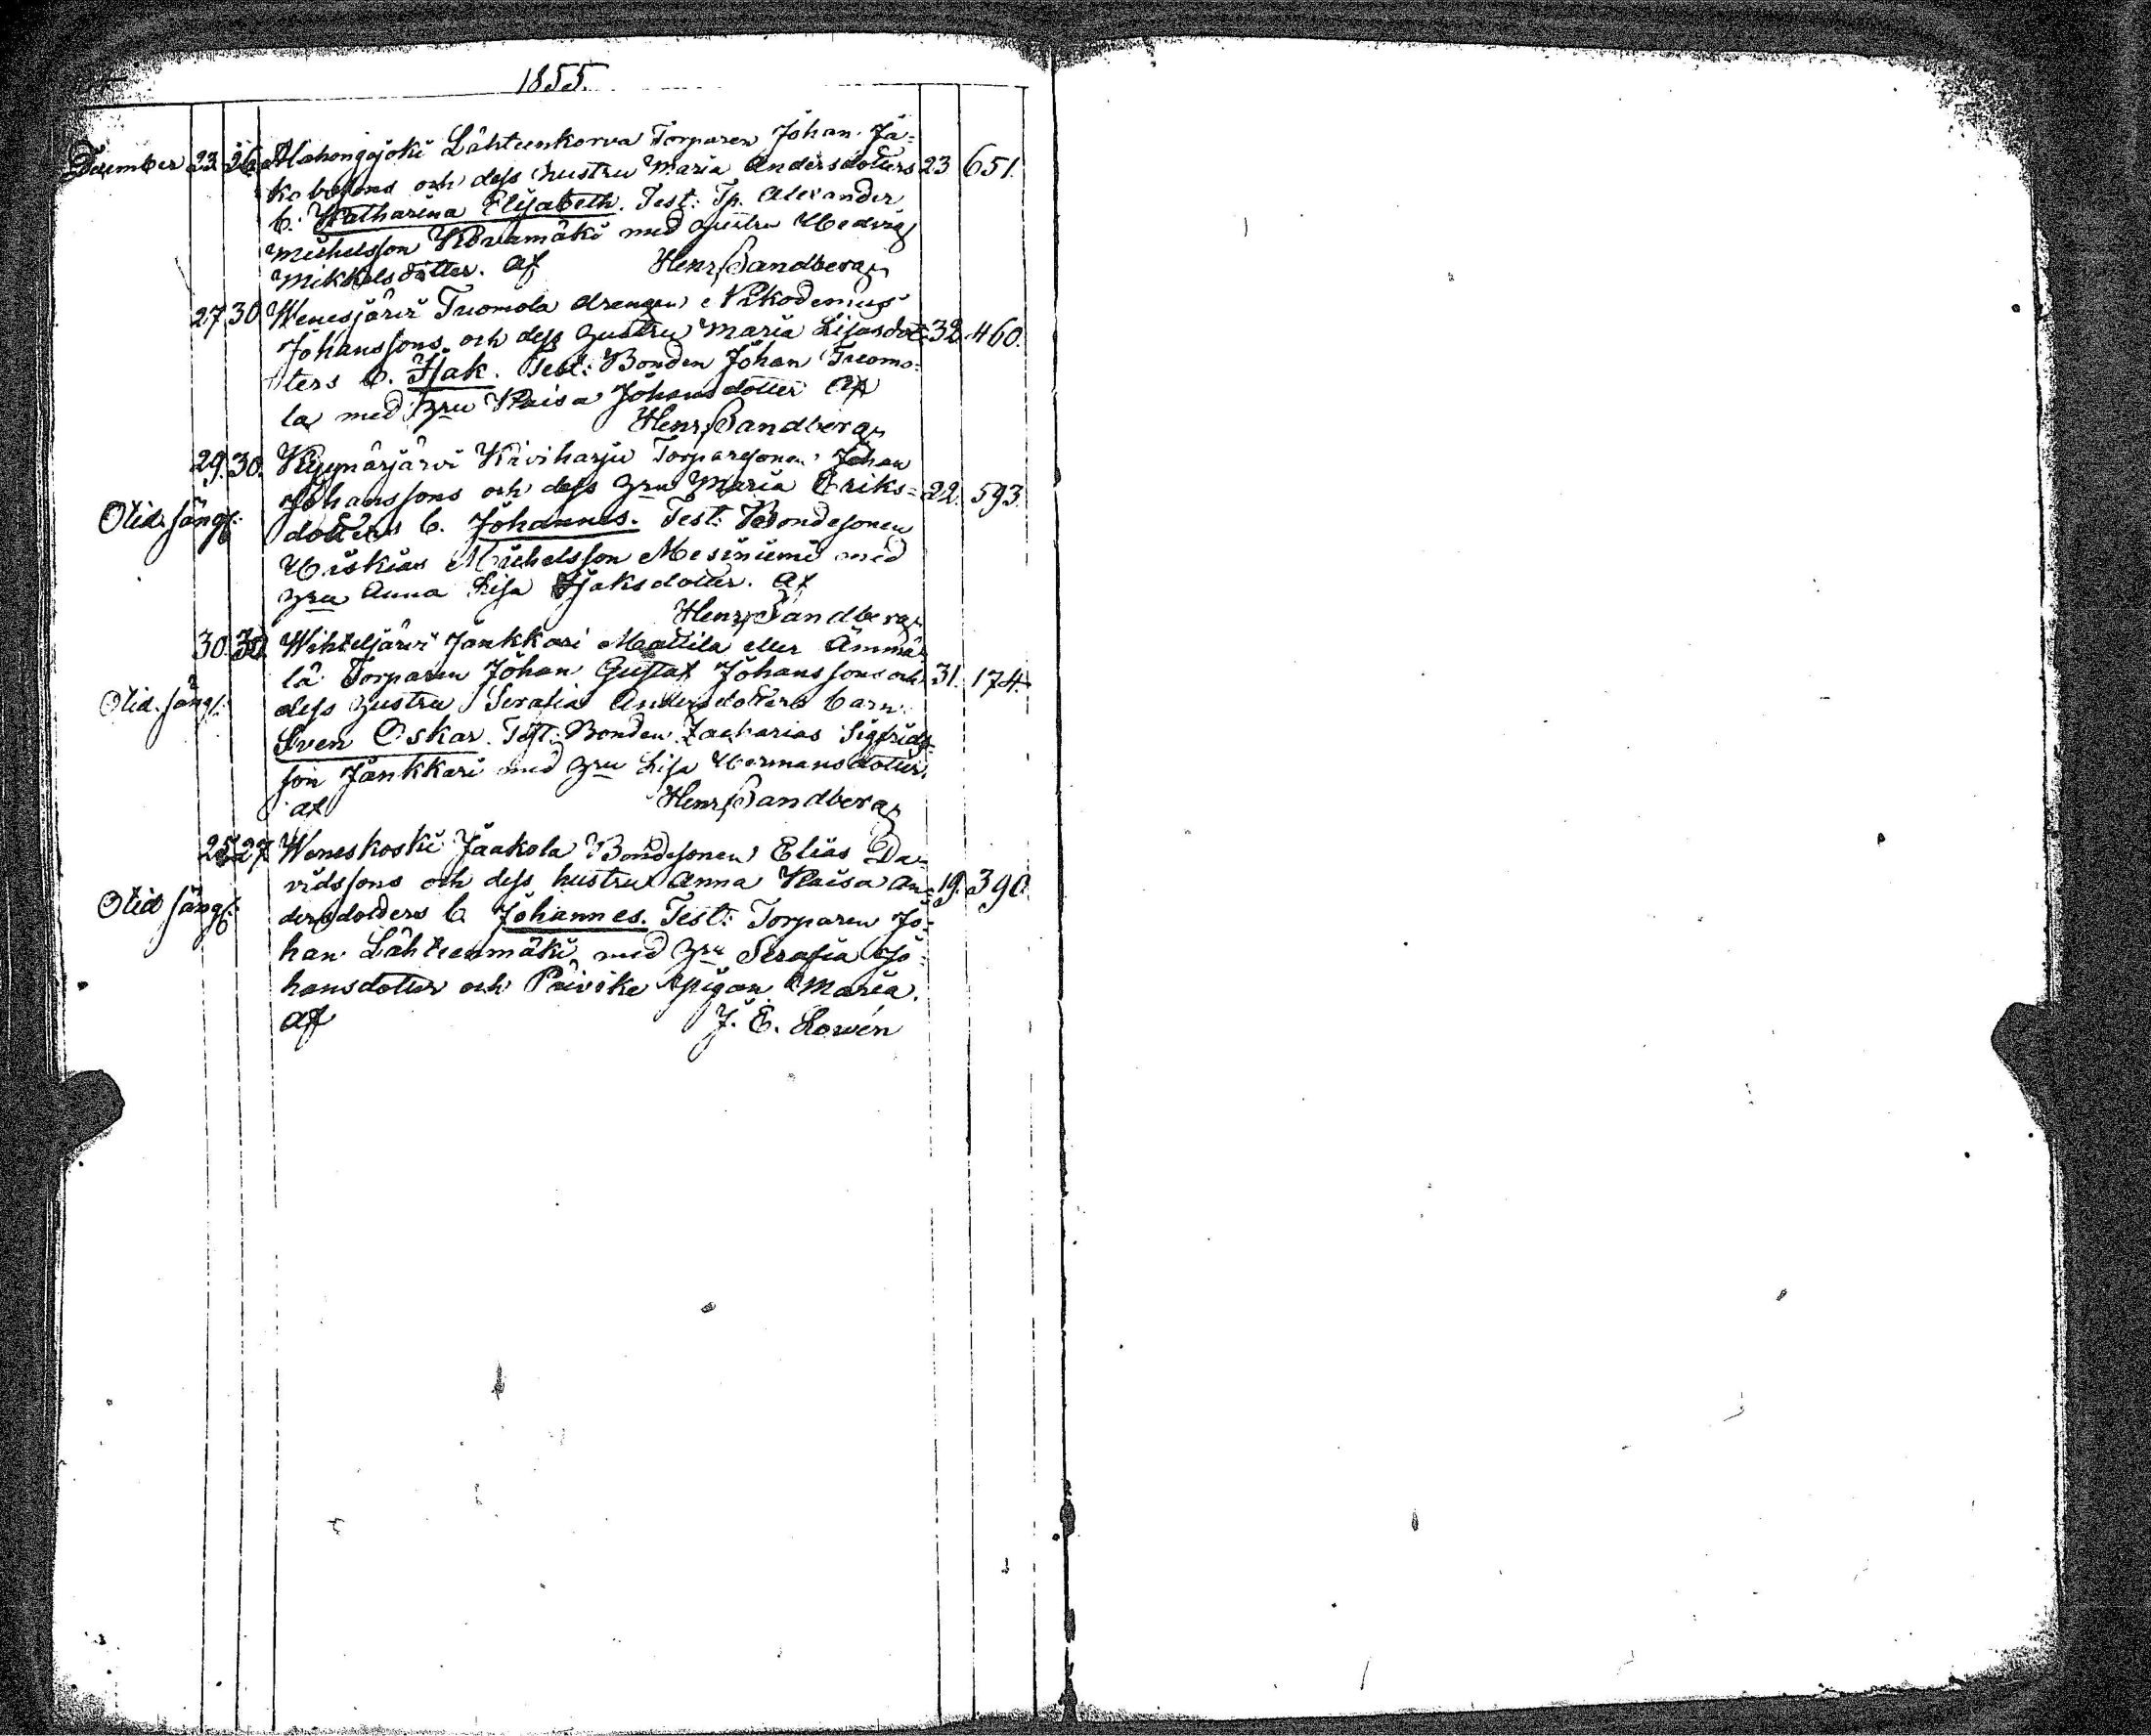 1855.
December 23. 26. Ala Hongojoki Lähteenkorva Torparen Johan Ja=
kobssons och dess hustru Maria Andersdotters 23 651.
b. Katharina Elisabeth. Test: Tp. Alexander
Michelsson Koramäki med hustru Hedvig
Mikkelsdotter. af Henr. Sandberg
27. 30. Wenesjärvi Tuomola drengen Nikodemus
Johanssons och dess hustru Maria Lisasdot= 32. 460.
ters b. Isak. Test: Bonden Johan Tuomo=
la med hru Kaisa Johansdotter af
Henr. Sandberg
29. 30. Kyynärjärvi Kiviharju Torparesonen Johan
Johanssons och dess hru Maria Eriks= 22. 593.
Otid. sängl: dotters b. Johannes. Test: Bondesonen
Hiskias Michelsson Mesiniemi med
hru Anna Lisa Isaksdotter. af
Henr. Sandberg
30. 30. Wihteljärvi Jankkari Mattila eller Ämmä=
lä Torparen Johan Gustaf Johanssons och 31. 174.
Otid. sängl: dess hustru Serafia Andersdotters barn
Sven Oskar. Test: Bonden Zacharias Sigfrids=
son Jankkari med hru Lisa Hermansdotter.
af Henr. Sandberg
25. 27. Weneskoski Jaakola Bondesonen Elias Da=
vidssons och dess hustru Anna Kaisa An= 19. 390.
Otid sängl: dersdotters b. Johannes. Test: Torparen Jo=
han Lähteenmäki med hru Serafia Jo=
hansdotter och Päivike pigan Maria.
af J. E. Lowén